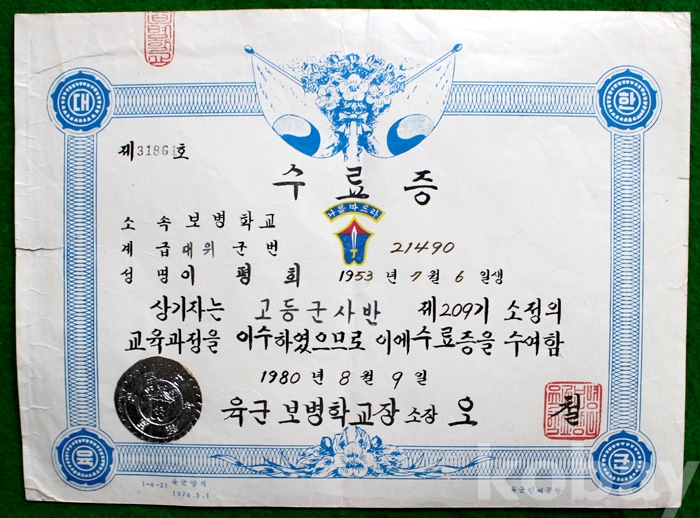 대 한
제31861호
수료증
나를 따르라
소 속 보병학교
계 급 대위 군 번 21490
성 명 이 평 희 1953 년 7 월 6 일생
상기자는 고등군사반 제209기 소정의
교육과정을 이수하였으므로 이에 수료증을 수여함
1980 년 8 월 9 일
육군 보병학교장 소장 오 철
육 군
1-6-21 육군양식
1976.3.1
kobay